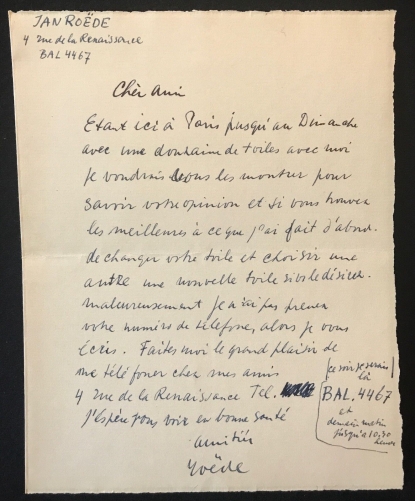 JAN ROËDE
4 rue de la Renaissance
BAL 4467
Chèr ami
Etant ici à Paris jusqu'au Dimanche
avec une douhaine de toiles avec moi
je voudrais vous les montrer pour
savoir votre opinion et si vous trouvez
les meilleures à ce que j'ai fait d'abord.
de changer votre toile et choisir une
autre une nouvelle toile si vs le désirez.
malheureusement je n'ai pas
votre numéro de téléfone, alors je vous
écris. Faites moi le grand plaisir de
me téléfoner chez mes amis
4 rue de la Renaissance Tel.
ce soir je serais
là
BAL. 4467
et
demain matin
jusqu'à 10,30
heures
J'espère vous voir en bonne santé
amitiés
Roëde